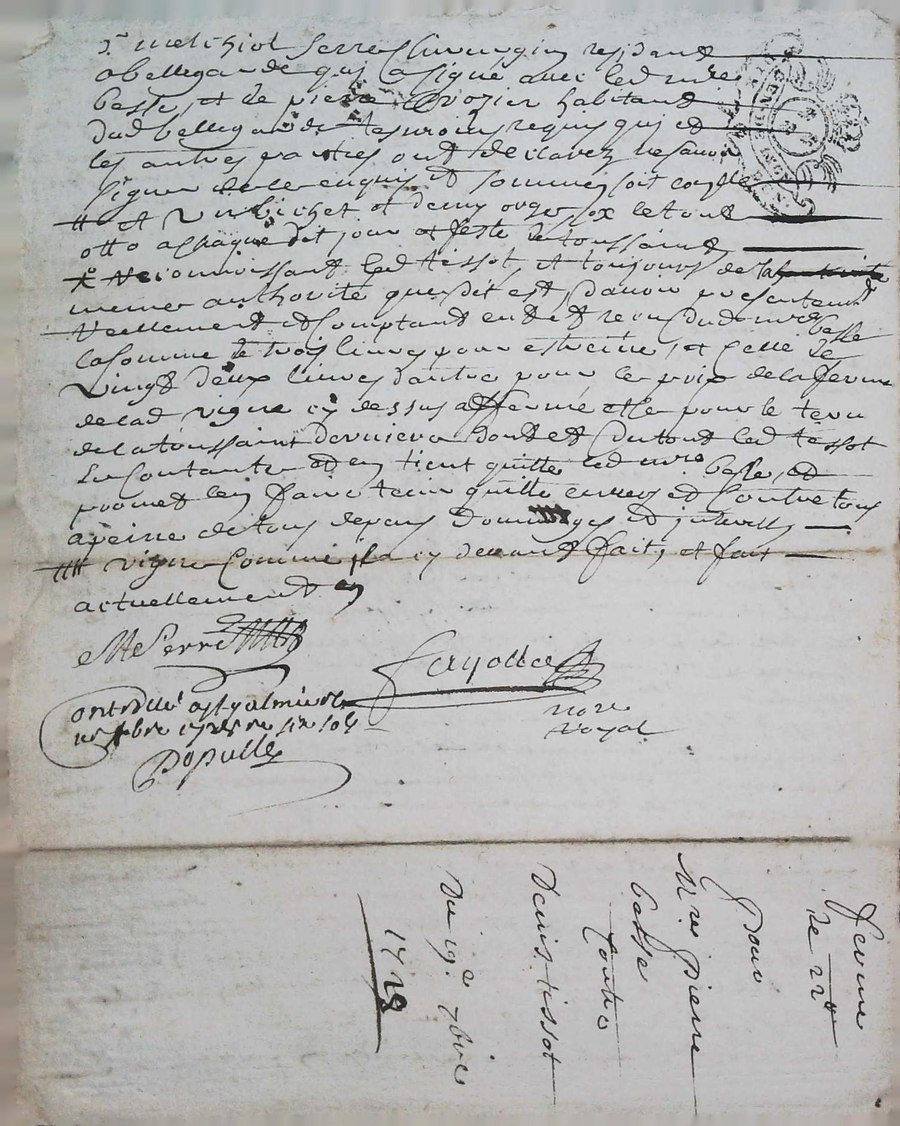 Sr melchiol Serre Chirurgien residant
a bellegarde qui a signé avec led mre
basse, et de pierre Crozier habitant
dud bellegarde tesmoins requis qui et
les autres parties ont declarez ne savoir
signer de ce enquis et sommes soit
et Un bichet et demy orge le tout
a chaque dit jour et feste de toussaint
reconnoissant led tissot, et toujours de la
meme authorité que dit est d'avoir presentement
reellement et comptant eu et receu dud mre basse
la somme de trois livres pour estreine, et celle de
vingt deux livres d'autre pour le prix de la ferme
de lad vigne cy dessus affermé et ce pour le tem
de la toussaint derniere dont et du tout led tissot
se contante et en tient quitte led mre basse, et
promet l'en faire tenir quitte envers et contre tous
a peine de tous depens Dommages et interests
vigne Comme il a cy devant fait, et fait
actuellement
M Serre
fayolle
nore
royal
Controllé a St galmier le
Popülle
ferme
de 22#
pour
Mre pierre
basse
Contre
Denis tissot
Du 19e 9bre
1729